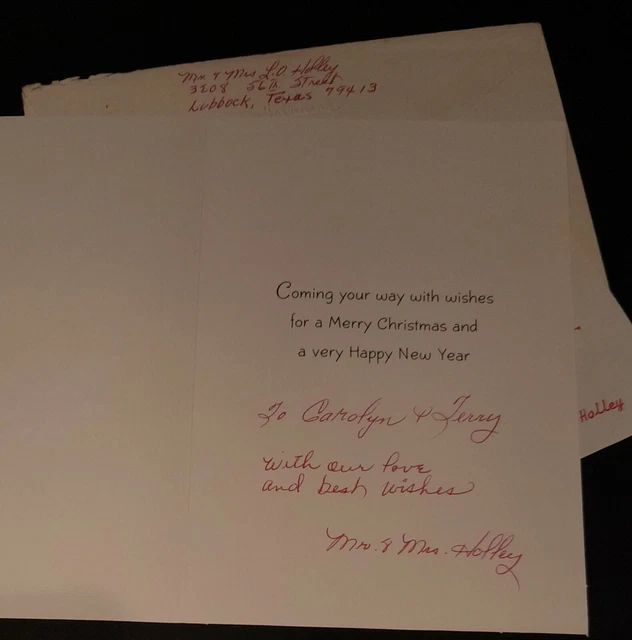 Mr. & Mrs L.O Holley
3208 56th Street
Lubbock, Texas 79413
Coming your way with wishes
for a Merry Christmas and
a very Happy New Year
To Carolyn & Terry
with our love
and best wishes
Mr. & Mrs. Holley
Holley